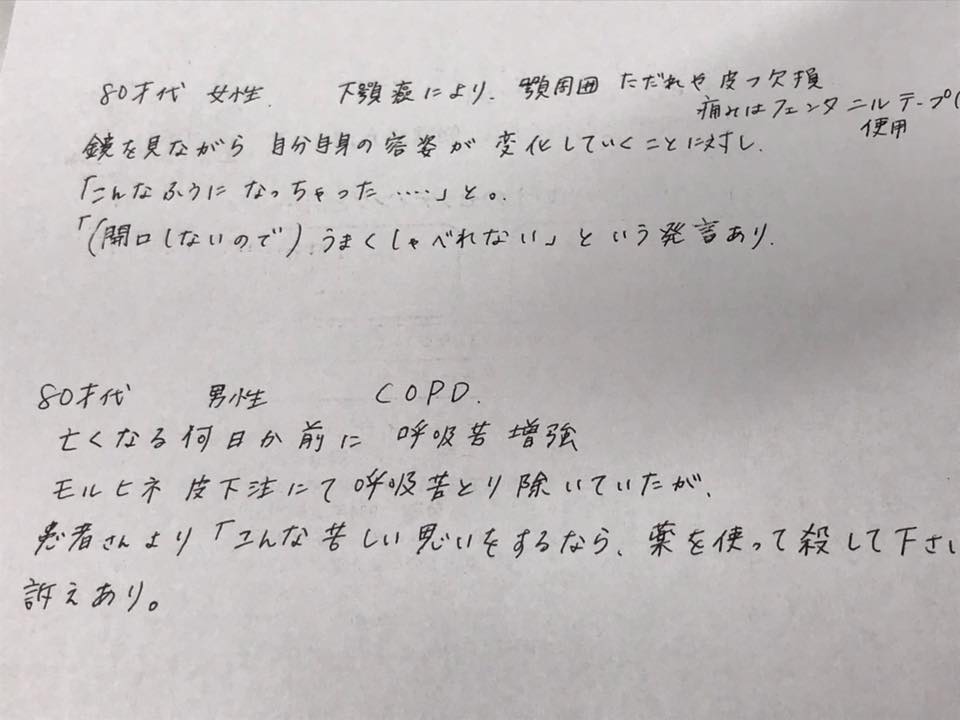 80才代 女性. 下顎癌により、顎周囲 ただれや皮フ欠損
痛みはフェンタニルテープ(
使用
鏡を見ながら 自分自身の容姿が 変化していくことに対し.
「こんなふうに なっちゃった ‥‥」と。
「(開口しないので) うまくしゃべれない」という発言あり.
80才代 男性 COPD.
亡くなる何日か前に 呼吸苦増強
モルヒネ 皮下注にて呼吸苦とり除いていたが、
患者さんより「こんな苦しい思いをするなら、薬を使って殺して下さい
訴えあり。